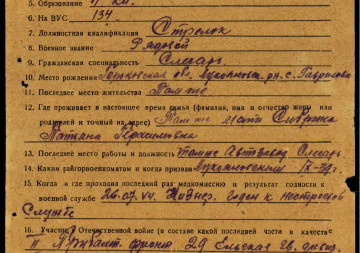 5. Образование 4 кл.
6. На ВУС 134
7. Должностная квалификация Стрелок
8. Военное звание Рядовой
9. Гражданская специальность Слесарь
10. Место рождения Горьковская обл. Лукояновск. рн. с. Гаврилово
11. Последнее место жительства Там же
12. Где проживает в настоящее время семья (фамилия, имя и отчество жены или
родителей и точный их адрес) Там же мать
Татьяна
13. Последнее место работы и должность Автозавод Слесарь
14. Каким райгорвоенкоматом и когда призван Лукояновский
15. Когда и где проходил последний раз медкомиссию и результат годности к
военной службе 26.07.44. годен к нестроевой
Службе
16. Участие в Отечественной войне (в составе какой последней части и в качестве
II Прибалт. фронт 29 Ельская гв. дивиз.